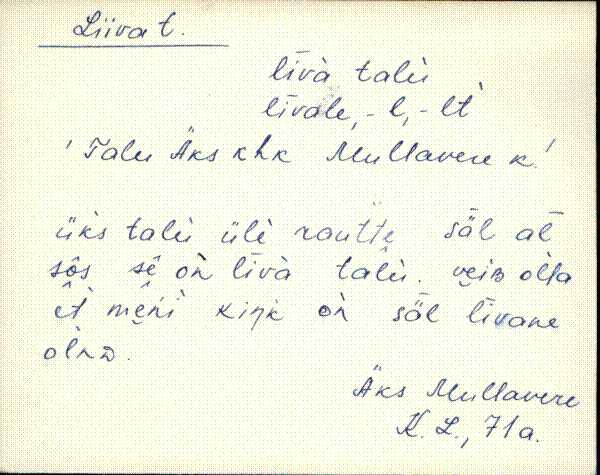 Liiva t.
līvà talù
līvale, -l, -lt
'Talu Äks khk Mullavere k.'
üks talù ülè rautte säl al
sôs sê òn līvà talù. veis òlla
èt mèni kiŋk òn säl līvane
òlnD.
Äks Mullavere
K. L., 71a.